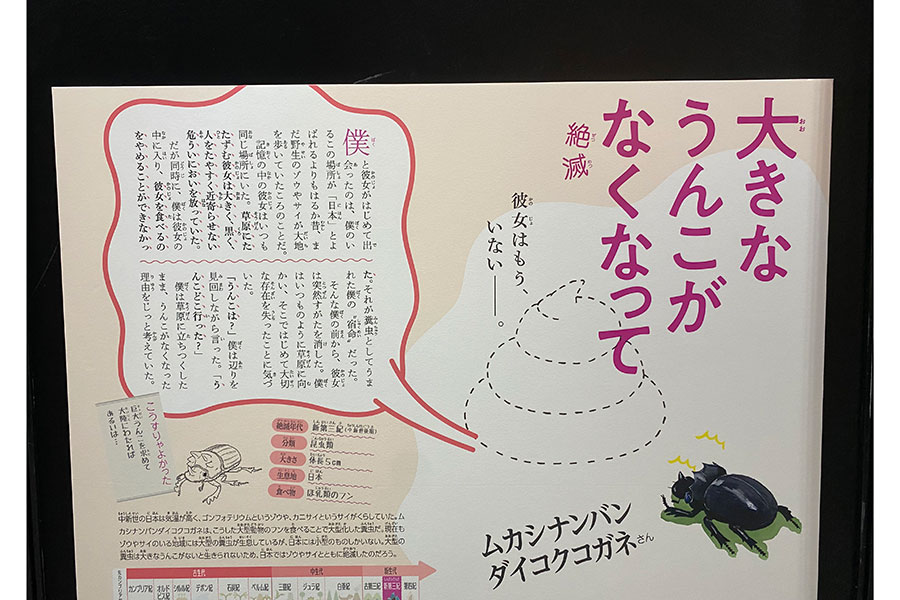 大きな
うんこが
なくなって
絶滅
彼女はもう、
いない――。
僕と彼女がはじめて出
会ったのは、僕のい
るこの場所が「日本」とよ
ばれるよりもはるか昔、ま
だ野生のゾウやサイが大地
を歩いていたころのことだ。
記憶の中の彼女はいつも
同じ場所にいた。草原にた
たずむ彼女は大きく、黒く、
人をたやすく近寄らせない
危ういにおいを放っていた。
だが同時に、僕は彼女の
中に入り、彼女を食べるの
をやめることができなかっ
た。それが糞虫としてうま
れた僕の“宿命”だった。
そんな僕の前から、彼女
は突然すがたを消した。僕
はいつものように草原に向
かい、そこではじめて大切
な存在を失ったことに気づ
いた。
「うんこは?」僕は辺りを
見回しながら言った。「う
んこどこ行った?」
僕は草原に立ちつくした
まま、うんこがなくなった
理由をじっと考えていた。
こうすりゃよかった
巨大うんこを求めて
大陸にわたれば
あるいは…
絶滅年代 新第三紀(中新世後期)
分類 昆虫類
大きさ 体長5cm
生息地 日本
食べ物 ほ乳類のフン
ムカシナンバン
ダイコクコガネさん
中新世の日本は気温が高く、ゴンフォテリウムというゾウや、カニサイというサイがくらしていた。ム
カシナンバンダイコクコガネは、こうした大型動物のフンを食べることで大型化した糞虫だ。現在も
ゾウやサイのいる地域には大型の糞虫が生息しているが、日本には小型のものしかいない。大型の
糞虫は大きなうんこがないと生きられないため、日本ではゾウやサイとともに絶滅したのだろう。
古生代 中生代 新生代
カンブリア紀 オルドビス紀 シルル紀 デボン紀 石炭紀 ペルム紀 三畳紀 ジュラ紀 白亜紀 古第三紀 新第三紀 第四紀